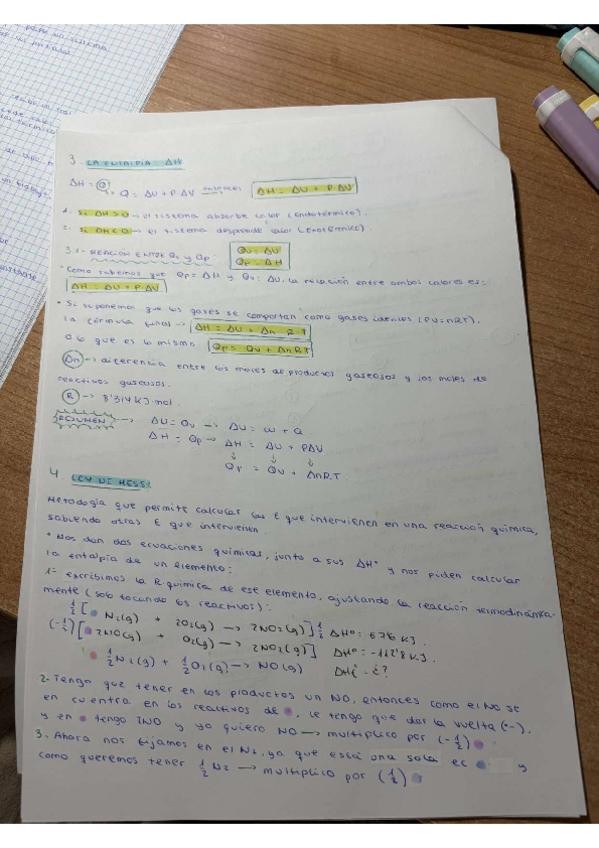 3. LA ENTALPIA: ΔH
ΔH = Qp → Q = ΔU + P·ΔV entonces ΔH = ΔU + P·ΔV
1. Si ΔH > 0 → el sistema absorbe calor (Endotérmico).
2. Si ΔH < 0 → el sistema desprende calor (Exotérmico).
3.1- RELACIÓN ENTRE Qv y Qp. Qv = ΔU
Qp = ΔH
Como sabemos que Qp = ΔH y Qv = ΔU, la relación entre ambos calores es:
ΔH = ΔU + P·ΔV
• Si suponemos que los gases se comportan como gases ideales (PV = nRT).
la fórmula final → ΔH = ΔU + Δn R·T
o lo que es lo mismo Qp = Qv + ΔnRT
Δn → diferencia entre los moles de productos gaseosos y los moles de
reactivos gaseosos.
R → 8'314 KJ·mol.
RESUMEN → ΔU = Qv → ΔU = W + Q
ΔH = Qp → ΔH = ΔU + PΔV
↓ ↓ ↓
Qp = Qv + ΔnRT
4. LEY DE HESS:
Metodología que permite calcular las E que intervienen en una reacción química,
sabiendo otras E que intervienen.
• Nos dan dos ecuaciones químicas, junto a sus ΔH° y nos piden calcular
la entalpía de un elemento:
1- escribimos la R.química de ese elemento, ajustando la reacción termodinámica-
mente (solo tocando los reactivos):
1/2 [ N2(g) + 2O2(g) → 2NO2(g) ] 1/2 ΔH°= 67'6 KJ.
(-1/2) [ 2NO(g) + O2(g) → 2NO2(g) ] ΔH°= -112'8 KJ.
1/2 N2(g) + 1/2 O2(g) → NO(g) ΔHf° = ¿?
2- Tengo que tener en los productos un NO, entonces como el NO se
en cuentra en los reactivos de , le tengo que dar la vuelta (-).
y en tengo 2NO y yo quiero NO → multiplico por (-1/2)
3. Ahora nos fijamos en el N2, ya que está una sola ec y
como queremos tener 1/2 N2 → multiplico por (1/2)